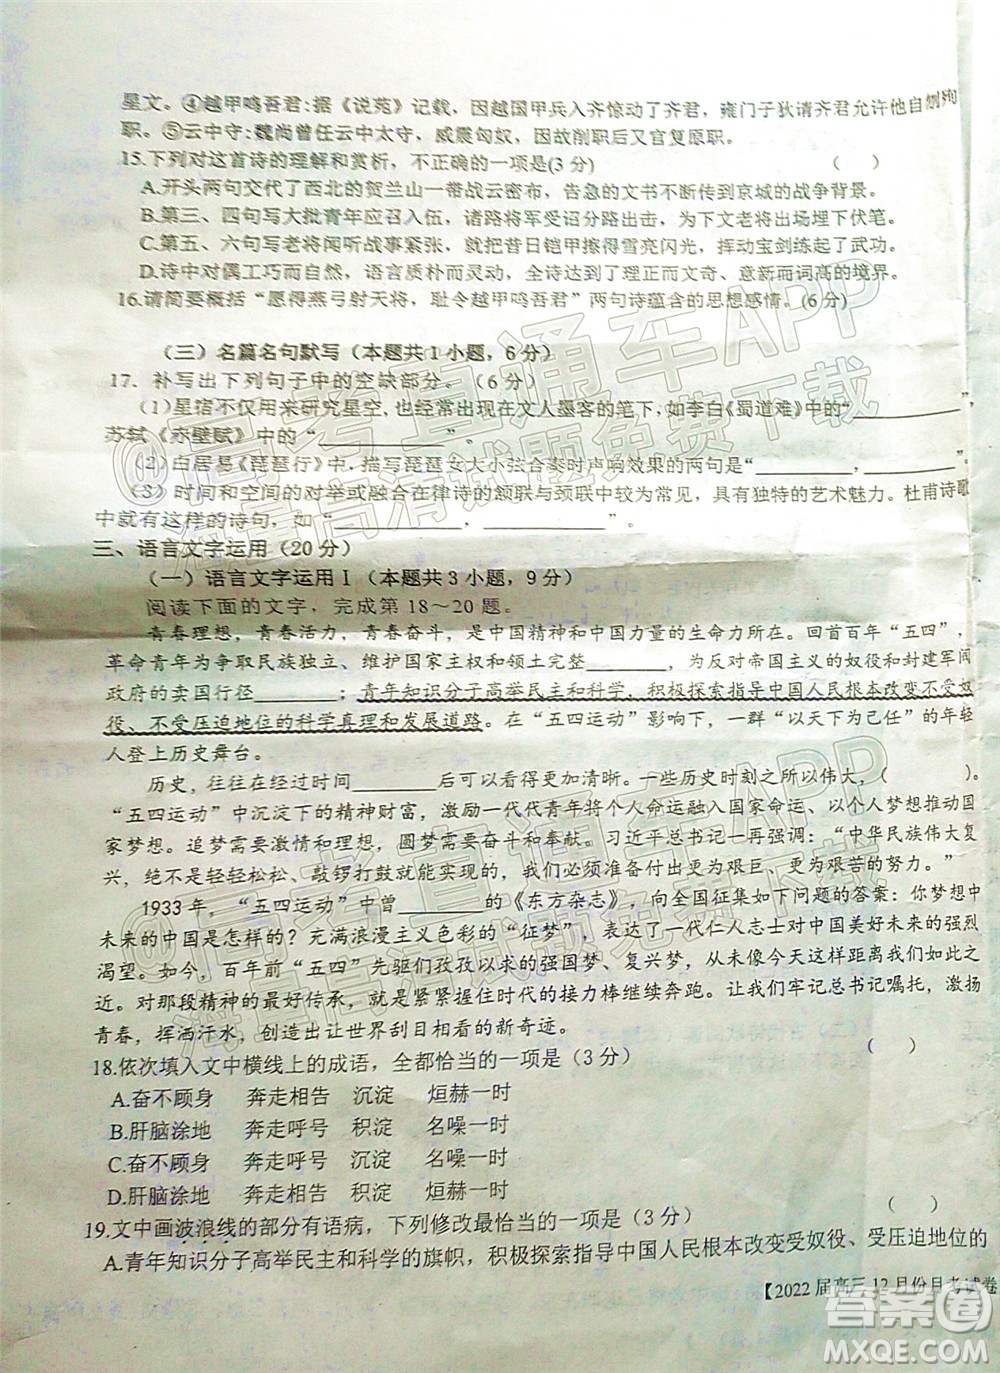 星文。④越甲鸣吾君:据《说苑》记载,因越国甲兵入齐惊动了齐君,雍门子狄请齐君允许他自刎殉
职。⑤云中守:魏尚曾任云中太守,威震匈奴,因故削职后又官复原职。
15.下列对这首诗的理解和赏析,不正确的一项是(3分) ( )
A.开头两句交代了西北的贺兰山一带战云密布,告急的文书不断传到京城的战争背景。
B.第三、四句写大批青年应召入伍,诸路将军受诏分路出击,为下文老将出场埋下伏笔。
C.第五、六句写老将闻听战事紧张,就把昔日铠甲擦得雪亮闪光,挥动宝剑练起了武功。
D.诗中对偶工巧而自然,语言质朴而灵动,全诗达到了正而文奇、意新而词高的境界。
16.请简要概括“愿得燕弓射天将,耻令越甲鸣吾君”两句诗蕴含的思想感情。(6分)
(三)名篇名句默写(本题共1小题,6分)
17.补写出下列句子中的空缺部分。(6分)
(1)星宿不仅用来研究星空,也经常出现在文人墨客的笔下,如李白《蜀道难》中的“__________”,
苏轼《赤壁赋》中的“__________”。
(2)白居易《琵琶行》中,描写琵琶女大小弦合奏时声响效果的两句是“________,________”
(3)时间和空间的对举或融合在律诗的颔联与颈联中较为常见,具有独特的艺术魅力。杜甫诗歌
中就有这样的诗句,如“__________,__________”。
三、语言文字运用(20分)
(一)语言文字运用Ⅰ(本题共3小题,9分)
阅读下面的文字,完成第18~20题。
青春理想,青春活力,青春奋斗,是中国精神和中国力量的生命力所在。回首百年“五四”,
革命青年为争取民族独立、维护国家主权和领土完整________,与妄图瓜分中国的帝国主义的奴役和封建军阀
政府的卖国行径________;青年知识分子高举民主和科学、积极探索指导中国人民根本改变不受奴
役、不受压迫地位的科学真理和发展道路。在“五四运动”影响下,一群“以天下为己任”的年轻
人登上历史舞台。
历史,往往在经过时间________后可以看得更加清晰。一些历史时刻之所以伟大,( )。
“五四运动”中沉淀下的精神财富,激励一代代青年将个人命运融入国家命运、以个人梦想推动国
家梦想。追逐梦想需要激情和理想,圆梦需要奋斗和奉献。习近平总书记一再强调:“中华民族伟大复
兴,绝不是轻轻松松、敲锣打鼓就能实现的,我们必须准备付出更为艰巨、更为艰苦的努力。”
1933年,“五四运动”中曾________的《东方杂志》,向全国征集如下问题的答案:你梦想中
未来的中国是怎样的?充满浪漫主义色彩的“征梦”,显示出一代仁人志士对中国美好未来的强烈
渴望。如今,百年前“五四”先驱们孜孜以求的强国梦、复兴梦,从未如此之近。面向
未来,对那段精神的最好传承,就是紧紧握住时代的接力棒继续奔跑。让我们牢记总书记嘱托,激扬
青春,挥洒汗水,创造出让世界刮目相看的新奇迹。
18.依次填入文中横线上的成语,全都恰当的一项是(3分) ( )
A.奋不顾身 奔走相告 沉淀 烜赫一时
B.肝脑涂地 奔走呼号 积淀 名噪一时
C.奋不顾身 奔走呼号 沉淀 名噪一时
D.肝脑涂地 奔走相告 积淀 烜赫一时
19.文中画波浪线的部分有语病,下列修改最恰当的一项是(3分) ( )
A.青年知识分子高举民主和科学的旗帜,积极探索指导中国人民根本改变受奴役、受压迫地位的
【2022届高三12月份月考试卷
答案圈
MXQE.COM
@高考直通车APP
海量高清试题免费下载
@高考直通车APP
海量高清试题免费下载